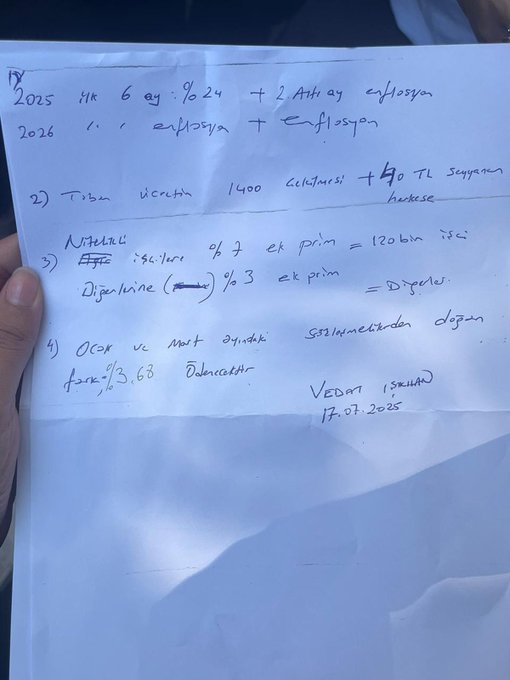 1)
2025 ilk 6 ay : %24 + 2. Altı ay enflosyon
2026 " " enflosyon + enflosyon
2) Taban ücretin 1400 çekilmesi + 40 TL seyyanen
herkese
Nitelikli
3) işçilere %7 ek prim = 120 bin işçi
Diğerlerine ( ) %3 ek prim = Diğerler.
4) Ocak ve Mart ayındaki sözleşmelilerden doğan
fark %3.68 Ödenecektir
VEDAT IŞIKHAN
17.07.2025